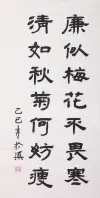 廉似梅花不畏寒
清如秋菊何妨瘦
乙巳年